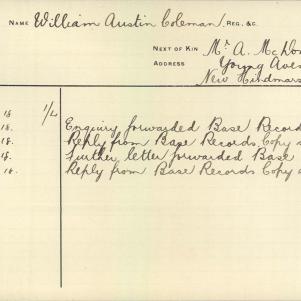 NAME William Austin Coleman, REG. &C.
NEXT OF KIN Mr. A. McDon
ADDRESS Young Aven
New Hindmars
18 1/L Enquiry forwarded Base Record
18. Reply from Base Records Copy
18. Further letter forwarded Base
18. Reply from Base Records Copy